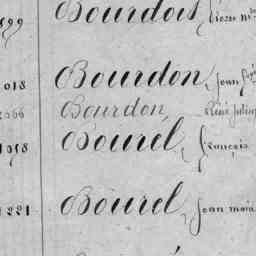 899 Bourdois, Pierre
1018 Bourdon, Jean
2566 Bourdon, René Julien
1058 Bourel, François
1221 Bourel, Jean marie